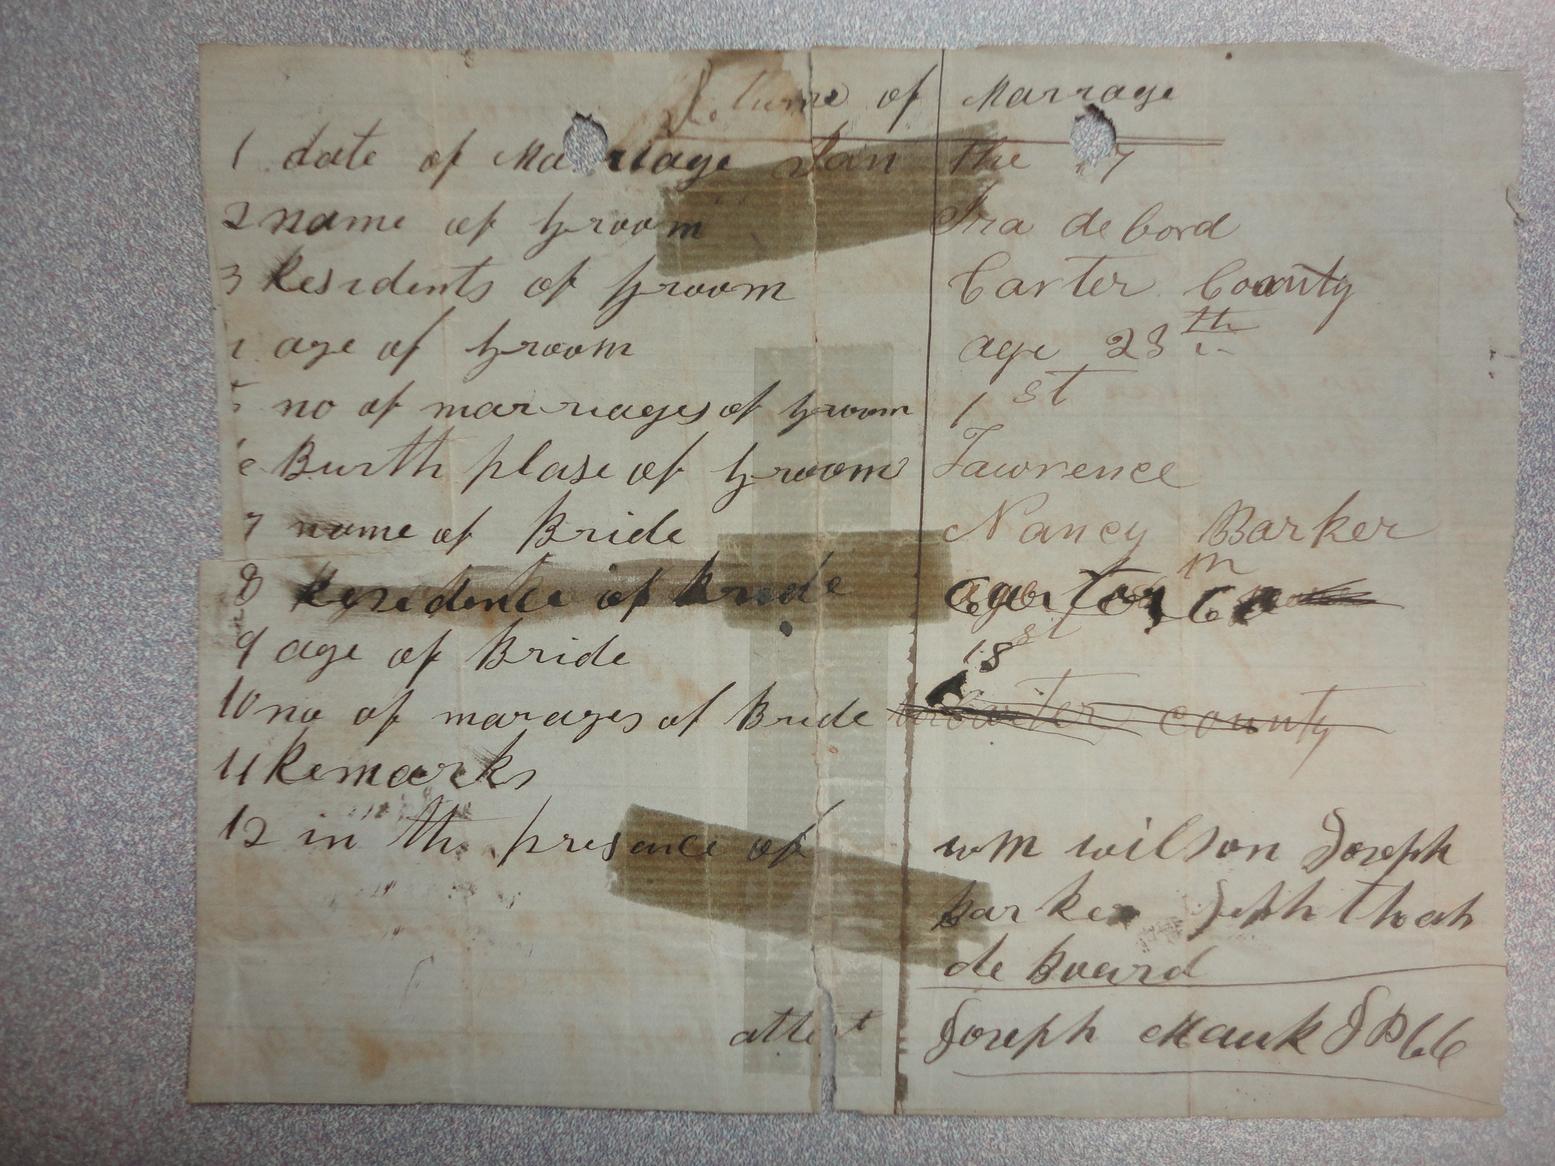 Returne of Marrage
1 date of Marriage Jan the 7
2 name of groom Ira debord
3 Residents of groom Carter County
age of groom age 23 th
no of marriages of groom 1 st
6 Burth plase of groom Lawrence
7 name of Bride Nancy Barker
8 Residence of Bride Carter Co
9 age of Bride 18
10 no of marages of Bride 1 st Carter county
11 Remarks
12 in the presence of wm wilson Joseph
barker Jephthah
de Board
attest Joseph Mauk JPCC